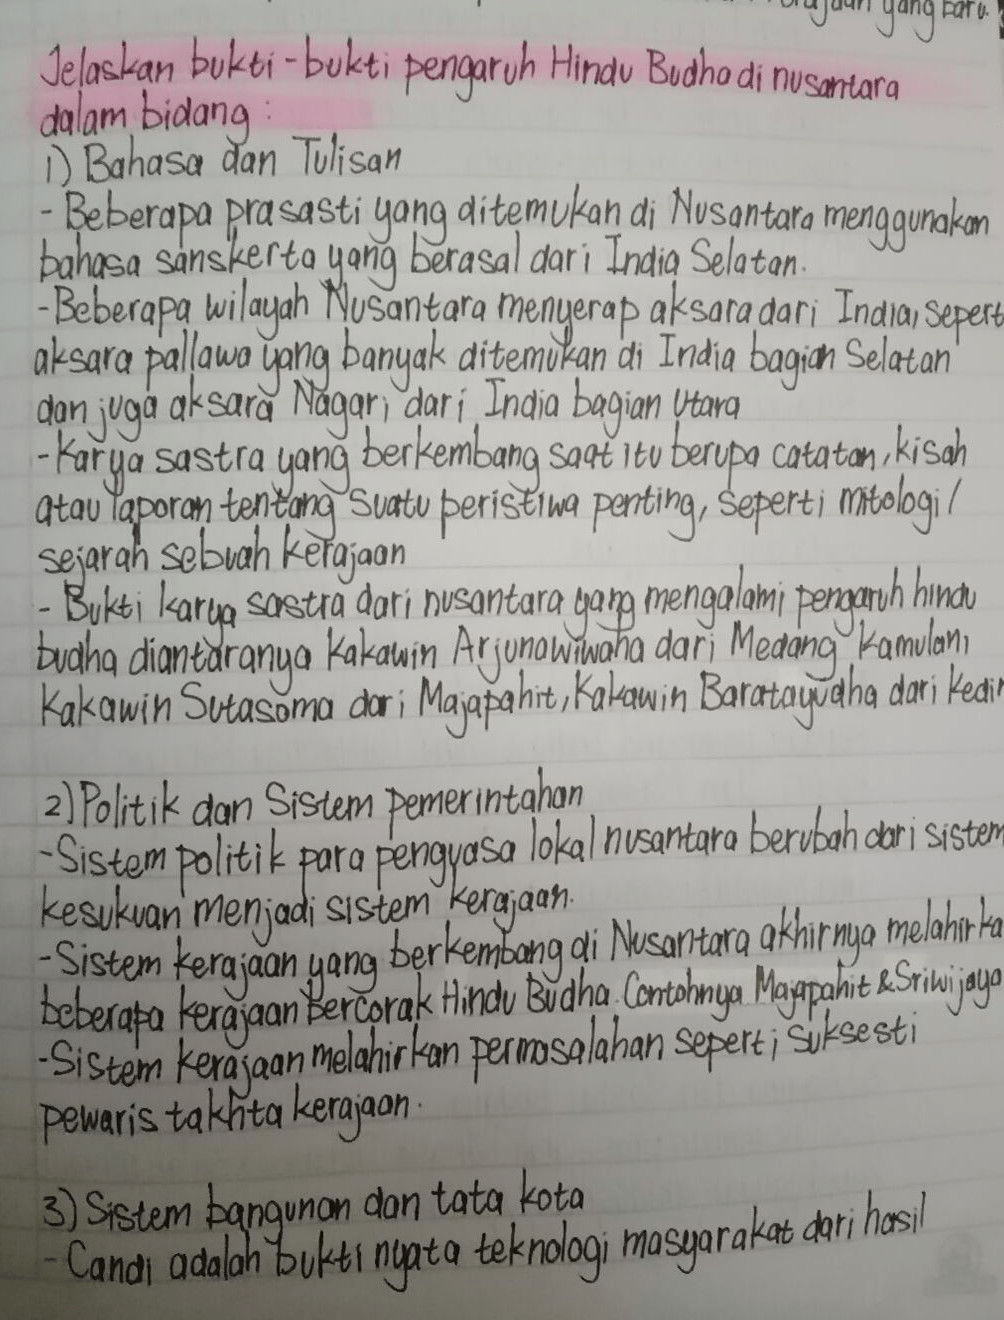 yang baru.
Jelaskan bukti-bukti pengaruh Hindu Budha di nusantara
dalam bidang :
1) Bahasa dan Tulisan
- Beberapa prasasti yang ditemukan di Nusantara menggunakan
bahasa sanskerta yang berasal dari India Selatan.
- Beberapa wilayah Nusantara menyerap aksara dari India, sepert
aksara pallawa yang banyak ditemukan di India bagian Selatan
dan juga aksara Nagari dari India bagian Utara
- Karya sastra yang berkembang saat itu berupa catatan, kisah
atau laporan tentang suatu peristiwa penting, seperti mitologi/
sejarah sebuah kerajaan
- Bukti karya sastra dari nusantara yang mengalami pengaruh hindu
budha diantaranya Kakawin Arjunawiwaha dari Medang Kamulan,
Kakawin Sutasoma dari Majapahit, Kakawin Baratayudha dari Kedir
2) Politik dan Sistem pemerintahan
- Sistem politik para penguasa lokal nusantara berubah dari sistem
kesukuan menjadi sistem kerajaan.
- Sistem kerajaan yang berkembang di Nusantara akhirnya melahirka
beberapa kerajaan bercorak Hindu Budha. Contohnya Majapahit & Sriwijaya
- Sistem kerajaan melahirkan permasalahan seperti suksesti
pewaris takhta kerajaan.
3) Sistem bangunan dan tata kota
- Candi adalah bukti nyata teknologi masyarakat dari hasil